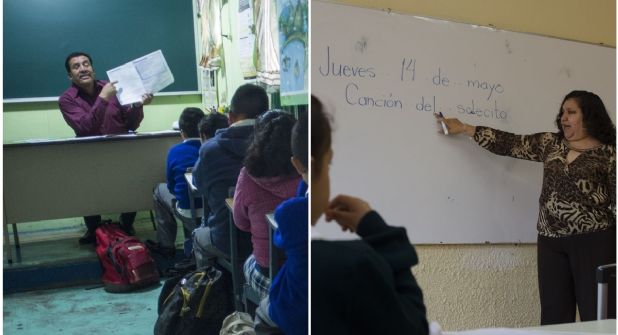 Jueves 14 de mayo
Canción del solecito